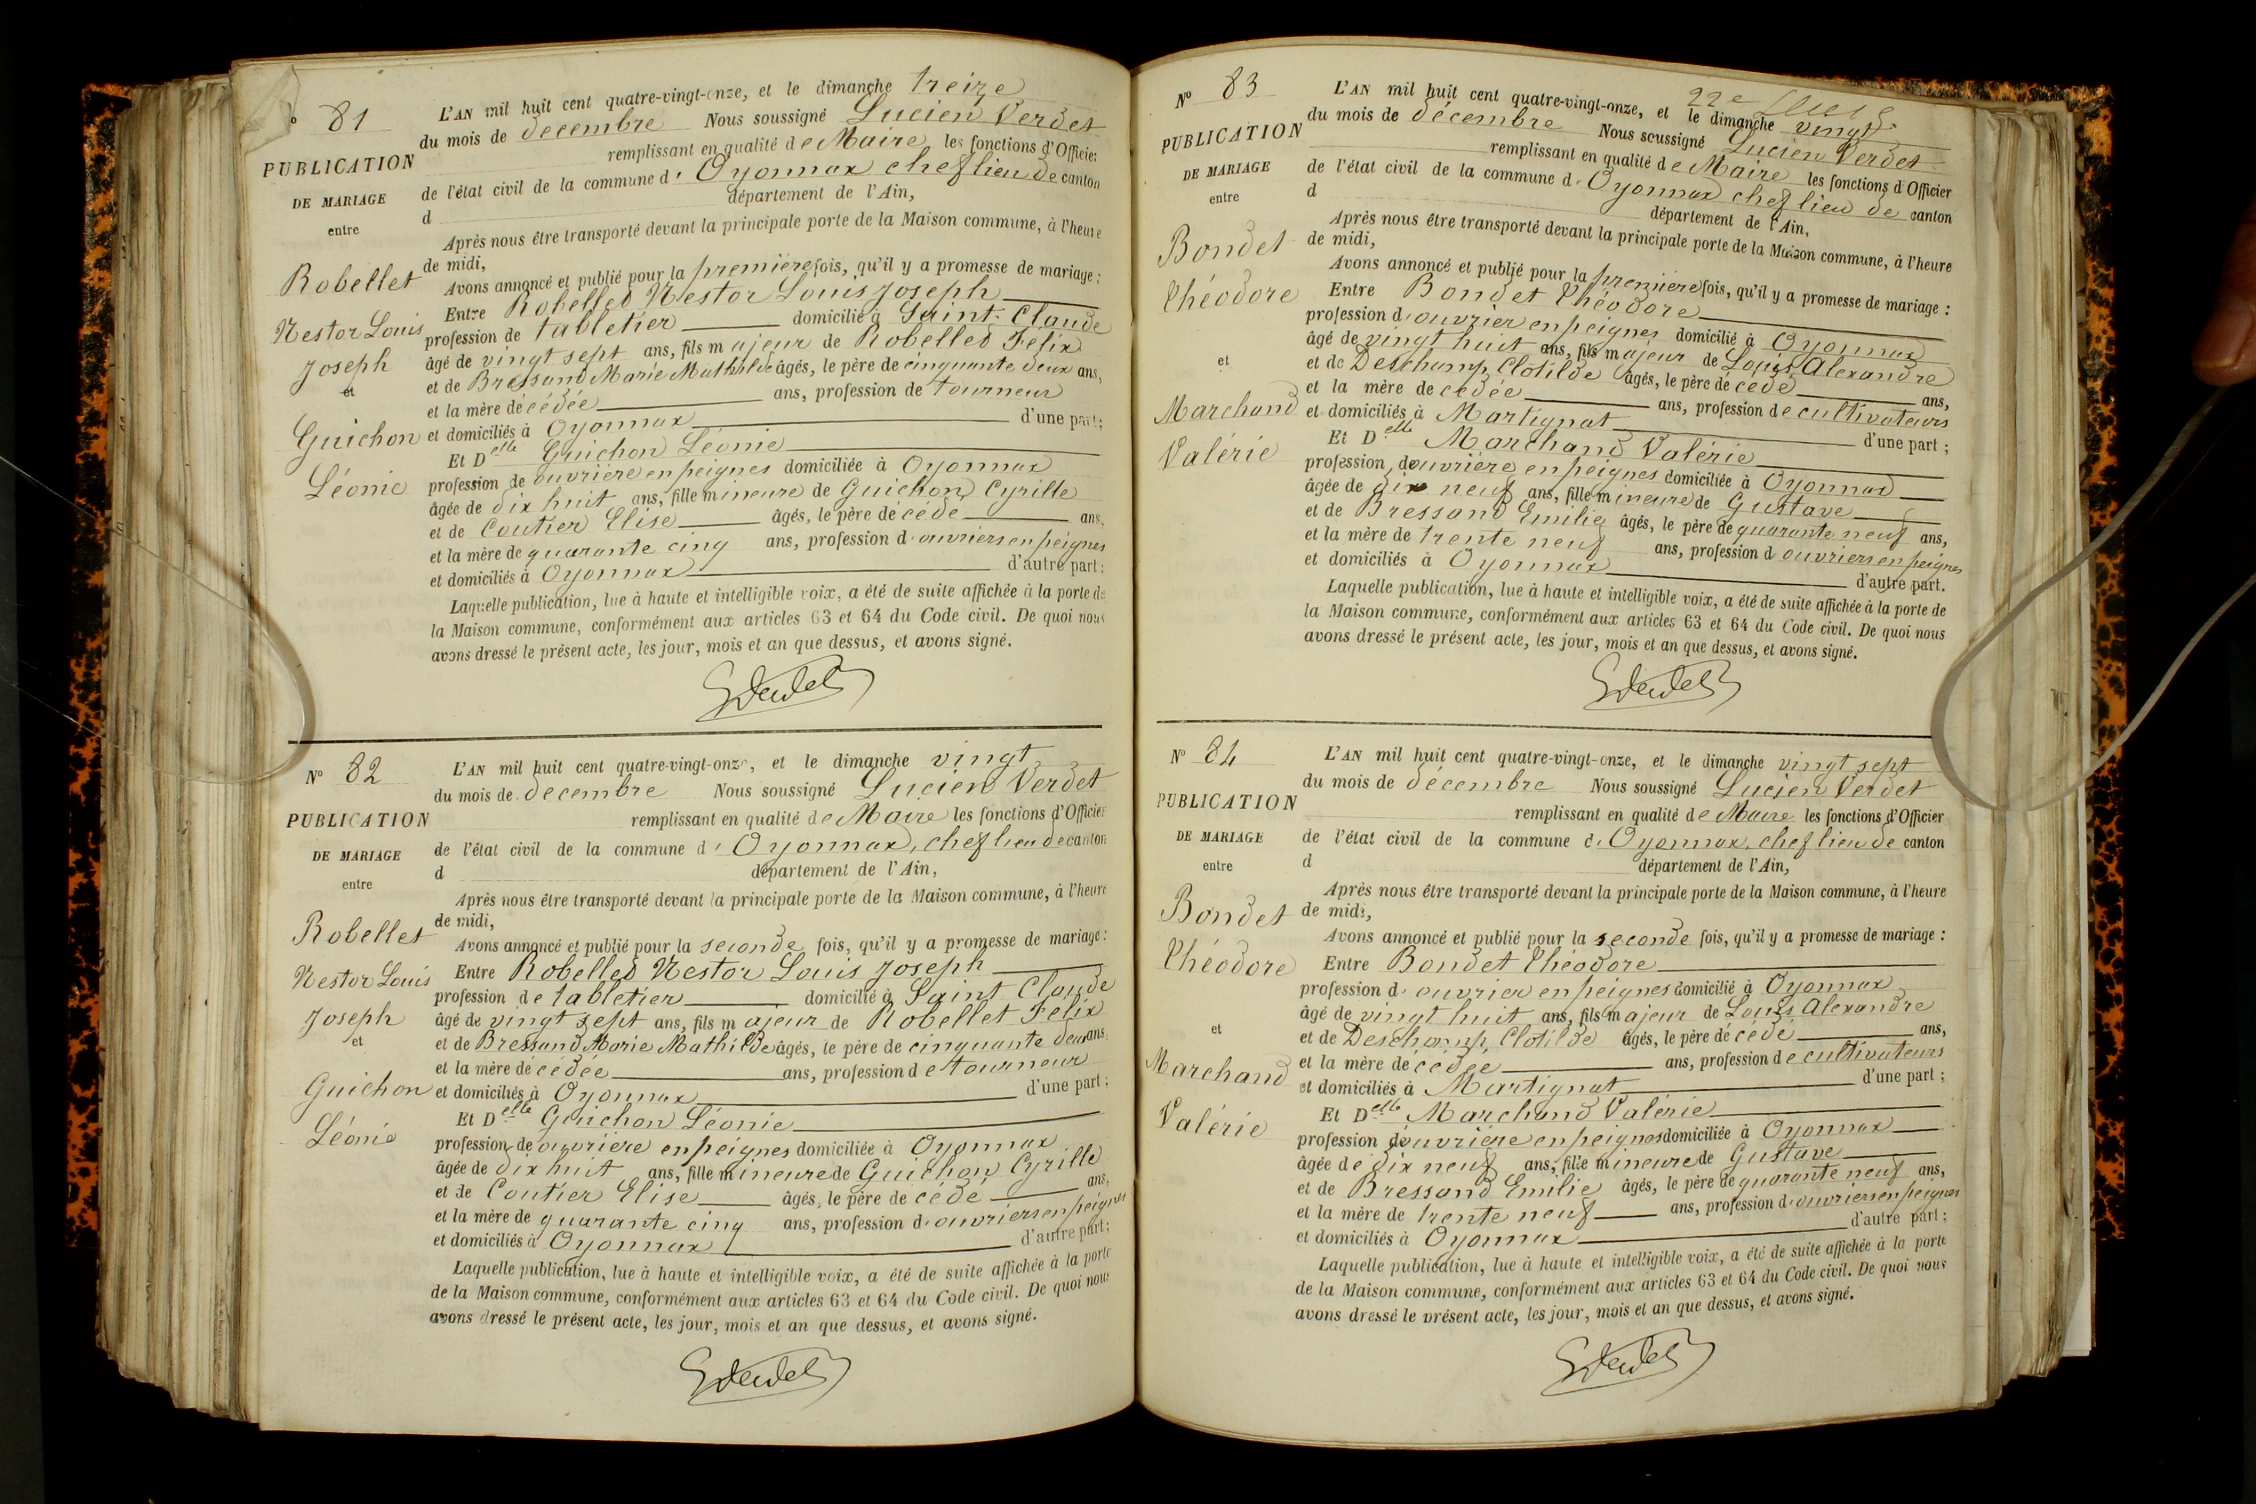 º 81
PUBLICATION
DE MARIAGE
entre
Robellet
Nestor Louis
Joseph
et
Guichon
Léonie
L'AN mil huit cent quatre-vingt-onze, et le dimanche treize
du mois de décembre Nous soussigné Lucien Verdet
remplissant en qualité de Maire les fonctions d'Officier
de l'état civil de la commune d' Oyonnax chef lieu de canton
d département de l'Ain,
Après nous être transporté devant la principale porte de la Maison commune, à l'heure
de midi,
Avons annoncé et publié pour la première fois, qu'il y a promesse de mariage :
Entre Robellet Nestor Louis Joseph
profession de tabletier domicilié à Saint-Claude
âgé de vingt sept ans, fils majeur de Robellet Félix
et de Bressand Marie Mathilde âgés, le père de cinquante deux ans,
et la mère décédée ans, profession de tourneur
et domiciliés à Oyonnax d'une part;
Et Delle Guichon Léonie
profession de ouvrière en peignes domiciliée à Oyonnax
âgée de dix huit ans, fille mineure de Guichon Cyrille
et de Coutier Elise âgés, le père décédé ans,
et la mère de quarante cinq ans, profession d'ouvriers en peignes
et domiciliés à Oyonnax d'autre part;
Laquelle publication, lue à haute et intelligible voix, a été de suite affichée à la porte de
la Maison commune, conformément aux articles 63 et 64 du Code civil. De quoi nous
avons dressé le présent acte, les jour, mois et an que dessus, et avons signé.
Verdet
Nº 82
PUBLICATION
DE MARIAGE
entre
Robellet
Nestor Louis
Joseph
et
Guichon
Léonie
L'AN mil huit cent quatre-vingt-onze, et le dimanche vingt
du mois de décembre Nous soussigné Lucien Verdet
remplissant en qualité de Maire les fonctions d'Officier
de l'état civil de la commune d' Oyonnax, chef lieu de canton
d département de l'Ain,
Après nous être transporté devant la principale porte de la Maison commune, à l'heure
de midi,
Avons annoncé et publié pour la seconde fois, qu'il y a promesse de mariage :
Entre Robellet Nestor Louis Joseph
profession de tabletier domicilié à Saint Claude
âgé de vingt sept ans, fils majeur de Robellet Félix
et de Bressand Marie Mathilde âgés, le père de cinquante deux ans,
et la mère décédée ans, profession de tourneur
et domiciliés à Oyonnax d'une part;
Et Delle Guichon Léonie
profession de ouvrière en peignes domiciliée à Oyonnax
âgée de dix huit ans, fille mineure de Guichon Cyrille
et de Coutier Elise âgés, le père décédé ans,
et la mère de quarante cinq ans, profession d'ouvriers en peignes
et domiciliés à Oyonnax d'autre part;
Laquelle publication, lue à haute et intelligible voix, a été de suite affichée à la porte
de la Maison commune, conformément aux articles 63 et 64 du Code civil. De quoi nous
avons dressé le présent acte, les jour, mois et an que dessus, et avons signé.
Verdet
Nº 83
PUBLICATION
DE MARIAGE
entre
Bondet
Théodore
et
Marchand
Valérie
22e
L'AN mil huit cent quatre-vingt-onze, et le dimanche vingt
du mois de décembre Nous soussigné Lucien Verdet
remplissant en qualité de Maire les fonctions d'Officier
de l'état civil de la commune d' Oyonnax chef lieu de canton
d département de l'Ain,
Après nous être transporté devant la principale porte de la Maison commune, à l'heure
de midi,
Avons annoncé et publié pour la première fois, qu'il y a promesse de mariage :
Entre Bondet Théodore
profession d'ouvrier en peignes domicilié à Oyonnax
âgé de vingt huit ans, fils majeur de Louis Alexandre
et de Deschamp Clotilde âgés, le père décédé ans,
et la mère décédée ans, profession de cultivateurs
et domiciliés à Martignat d'une part;
Et Delle Marchand Valérie
profession d'ouvrière en peignes domiciliée à Oyonnax
âgée de dix neuf ans, fille mineure de Gustave
et de Bressand Emilie âgés, le père de quarante neuf ans,
et la mère de trente neuf ans, profession d'ouvriers en peignes
et domiciliés à Oyonnax d'autre part.
Laquelle publication, lue à haute et intelligible voix, a été de suite affichée à la porte de
la Maison commune, conformément aux articles 63 et 64 du Code civil. De quoi nous
avons dressé le présent acte, les jour, mois et an que dessus, et avons signé.
Verdet
Nº 84
PUBLICATION
DE MARIAGE
entre
Bondet
Théodore
et
Marchand
Valérie
L'AN mil huit cent quatre-vingt-onze, et le dimanche vingt sept
du mois de décembre Nous soussigné Lucien Verdet
remplissant en qualité de Maire les fonctions d'Officier
de l'état civil de la commune d' Oyonnax, chef lieu de canton
d département de l'Ain,
Après nous être transporté devant la principale porte de la Maison commune, à l'heure
de midi,
Avons annoncé et publié pour la seconde fois, qu'il y a promesse de mariage :
Entre Bondet Théodore
profession d'ouvrier en peignes domicilié à Oyonnax
âgé de vingt huit ans, fils majeur de Louis Alexandre
et de Deschamp Clotilde âgés, le père décédé ans,
et la mère décédée ans, profession de cultivateurs
et domiciliés à Martignat d'une part;
Et Delle Marchand Valérie
profession d'ouvrière en peignes domiciliée à Oyonnax
âgée de dix neuf ans, fille mineure de Gustave
et de Bressand Emilie âgés, le père de quarante neuf ans,
et la mère de trente neuf ans, profession d'ouvriers en peignes
et domiciliés à Oyonnax d'autre part;
Laquelle publication, lue à haute et intelligible voix, a été de suite affichée à la porte
de la Maison commune, conformément aux articles 63 et 64 du Code civil. De quoi nous
avons dressé le présent acte, les jour, mois et an que dessus, et avons signé.
Verdet